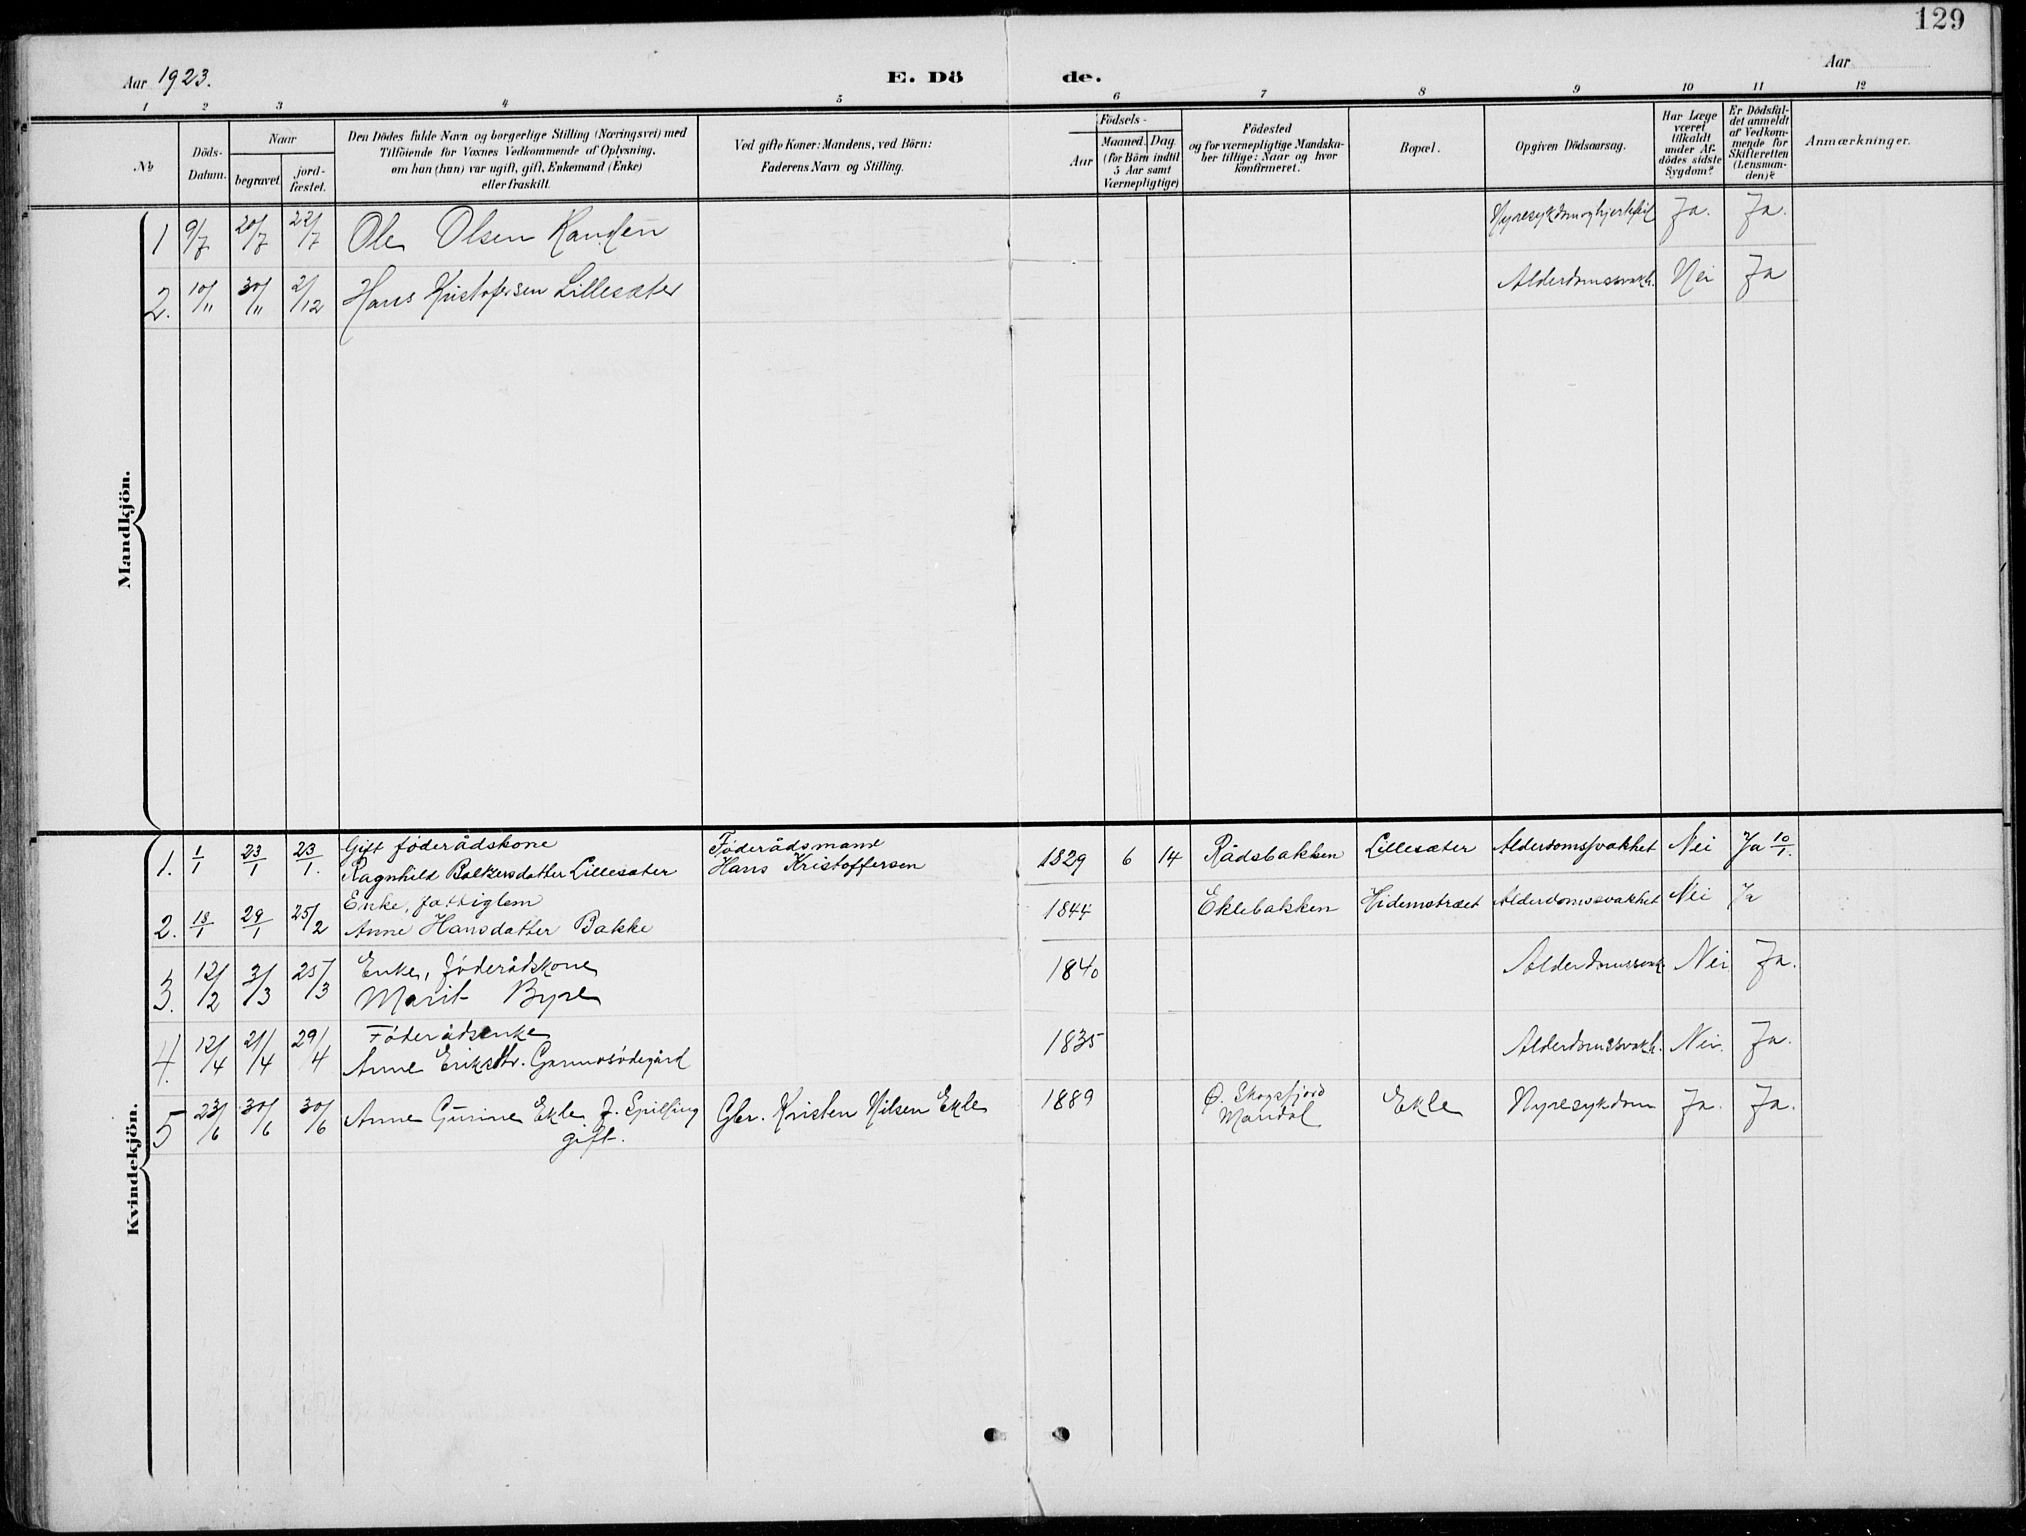 129
Aar 1923.
E. Dö de.
Aar
1 2 3 4 5 6 7 8 9 10 11 12
No
Döds-Datum.
Naar
begravet.
jord-fæstet.
Den Dödes fulde Navn og borgerlige Stilling (Næringsvei) med
Tilföiende for Voxnes Vedkommende af Oplysning,
om han (hun) var ugift, gift, Enkemand (Enke)
eller fraskilt.
Ved gifte Koner: Mandens, ved Börn:
Faderens Navn og Stilling.
Födsels-
Aar
Maaned. Dag.
(for Börn indtil
5 Aar samt
Værnepligtige)
Födested
og for værnepligtige Mandska-
ber tillige: Naar og hvor
konfirmeret.
Bopæl.
Opgiven Dödsaarsag.
Har Læge
været
tilkaldt
under Af-
dödes sidste
Sygdom?
Er Dödsfal-
det anmeldt
af Vedkom-
mende for
Skifteretten
(Lensman-
den)?
Anmærkninger.
Mandkjön.
1 9/7 20/7 22/7 Ole Olsen Randen Nyresykdom og hjertefeil Ja. Ja.
2. 10/11 30/11 2/12 Hans Kristofersen Lillesæter Alderdomssvakh. Nei Ja
Kvindekjön.
Gift föderådskone Föderådsmann
1. 1/1 23/1 23/1. Ragnhild Baltzersdatter Lillesæter Hans Kristoffersen 1829 6 14 Rådsbakken Lillesæter Alderdomssvakhet Nei Ja 10/1.
Enke, fattiglem
2. 18/1 29/1 25/2 Anne Hansdatter Bakke 1844 Eklebakken Videmstræet Alderdomssvakhet Nei Ja
Enke, föderådskone
3. 12/2 3/3 25/3 Marit Byre 1840 Alderdomssvak Nei Ja.
Föderådsenke
4. 12/4 21/4 29/4 Anne Eriksdtr. Garmosödegård 1835 Alderdomssvakh. Nei. Ja.
5 23/6 30/6 30/6 Anne Gurine Ekle f. Spilling Gbr. Kristen Nilsen Ekle 1889 Ø. Skogsfjord Ekle Nyresykdom Ja. Ja.
gift. Mandal